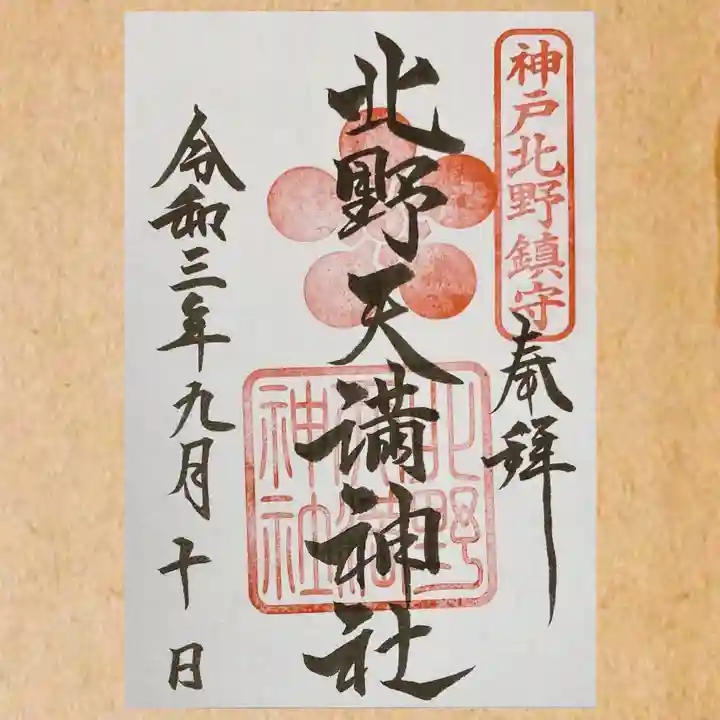 神戸北野鎮守
奉拝
北野天満神社
北野
天満
神社
令和三年九月十日